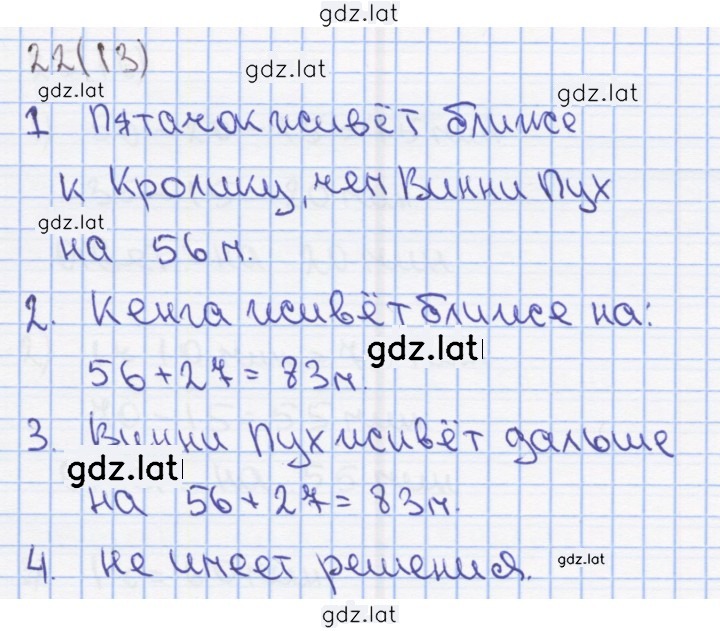 gdz.lat
22(13)
gdz.lat
gdz.lat
gdz.lat
1 Пятачок живёт ближе
к Кролику, чем Винни Пух
gdz.lat
на 56 м.
2. Кенга живёт ближе на:
gdz.lat
56+27=83м.
3. Винни Пух живёт дальше
gdz.lat
на 56+27=83м.
4. не имеет решения.
gdz.lat
gdz.lat